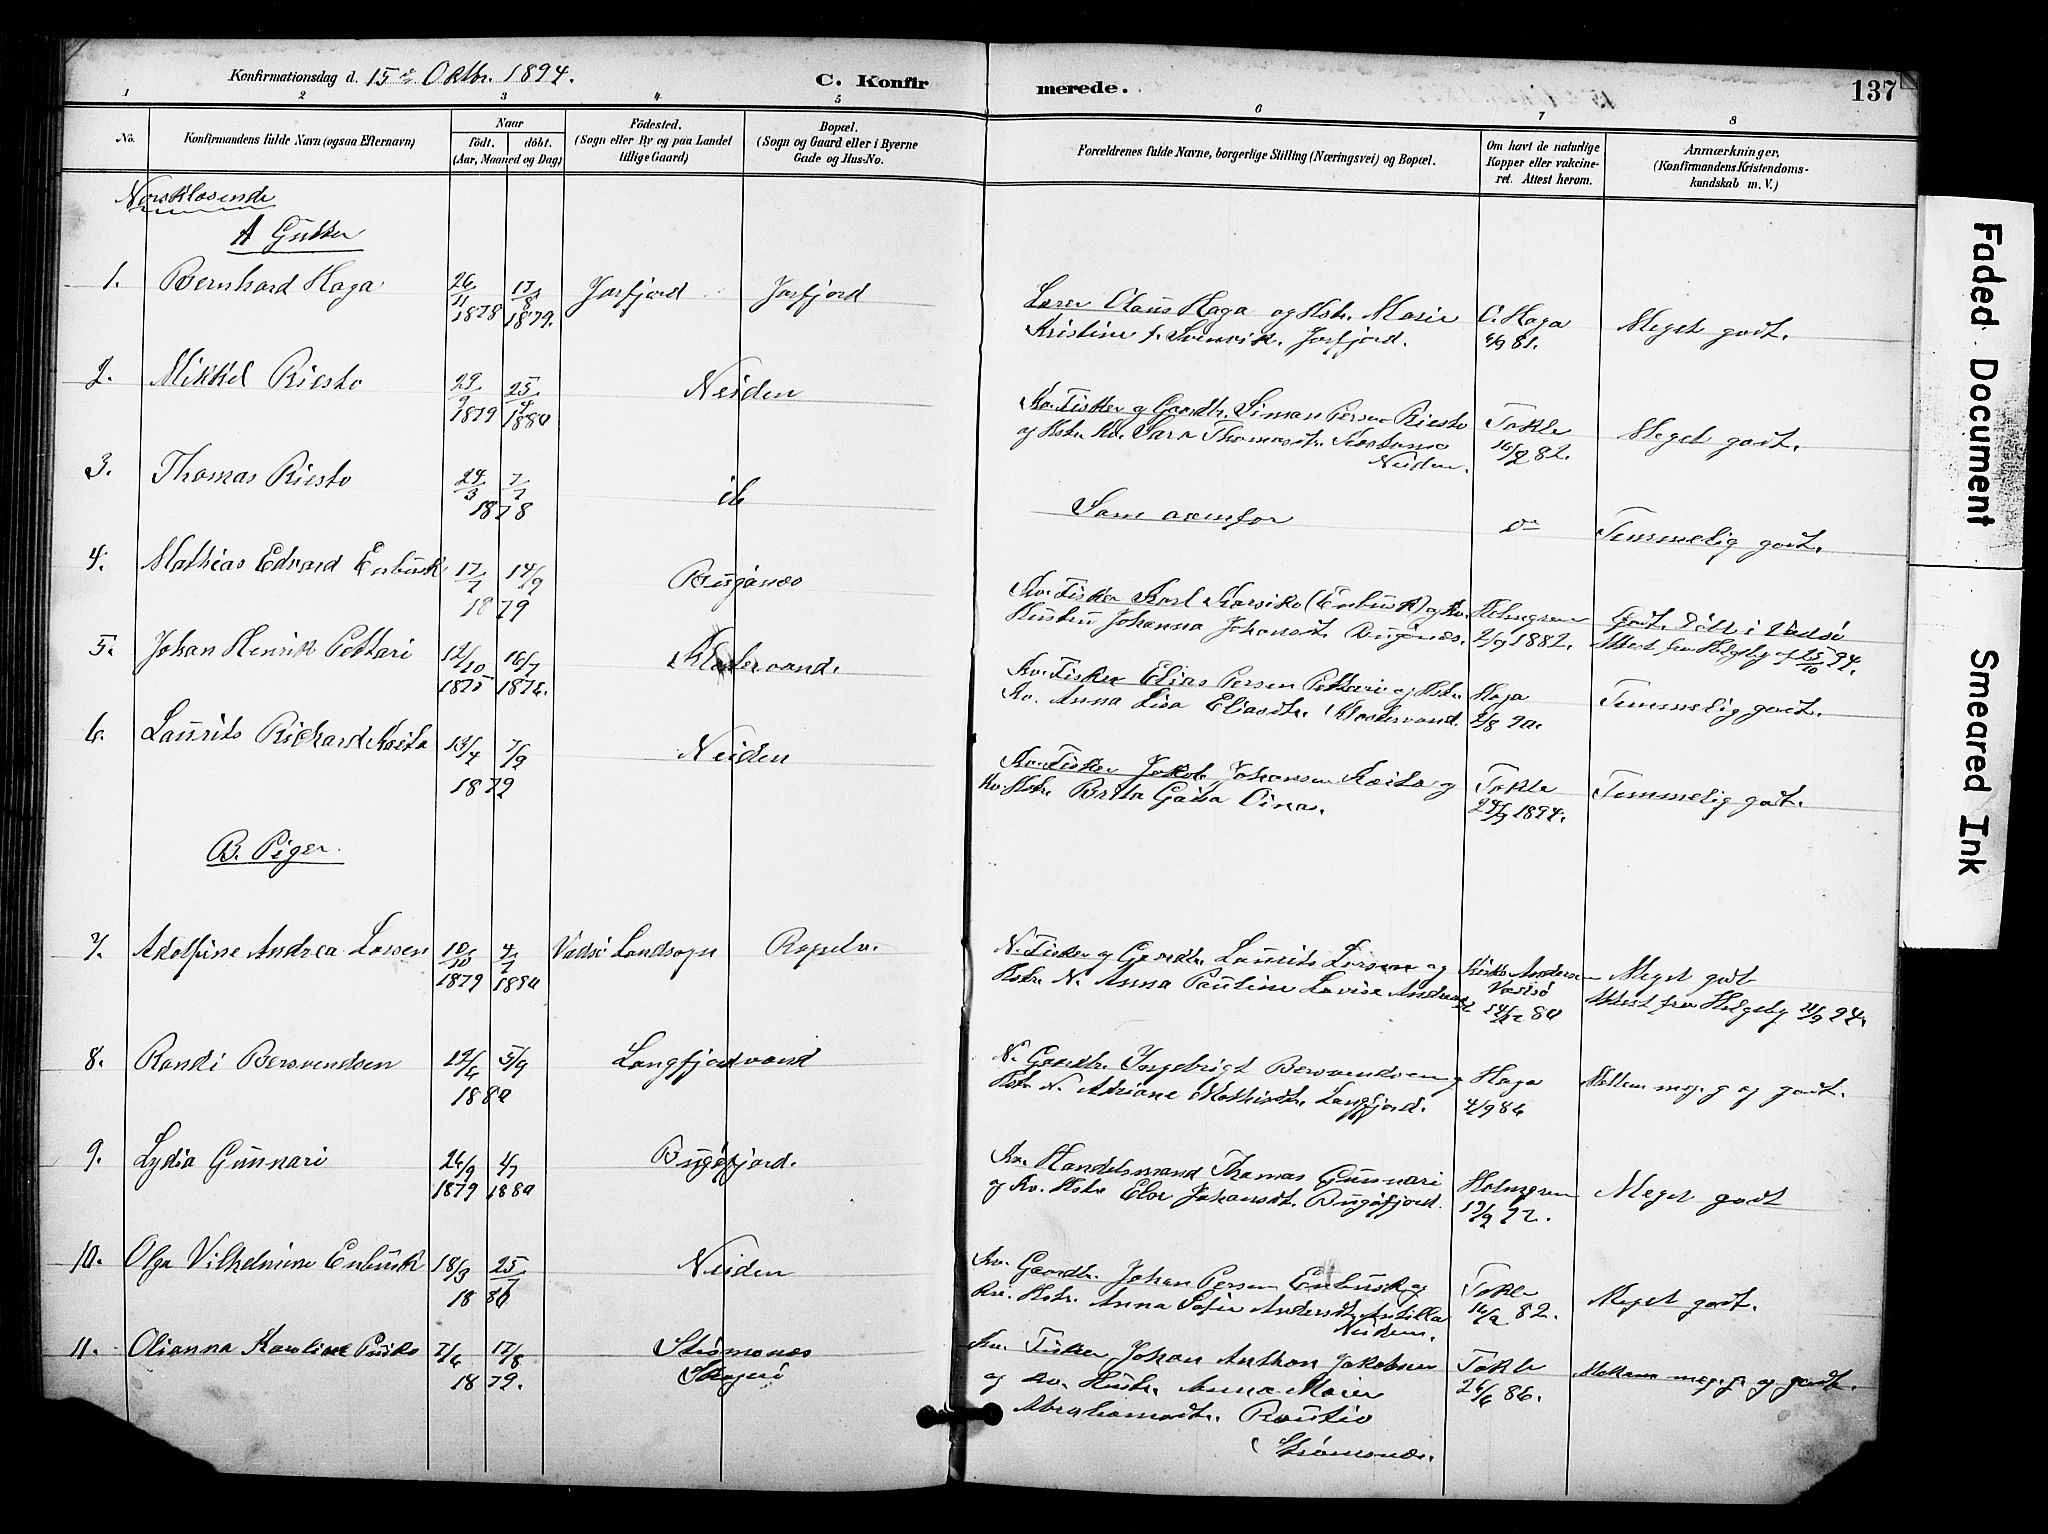 Konfirmationsdag d. 15de Oktbr. 1894.
C. Konfirmerede.
137
1 2 3 4 5 6 7 8
No.
Konfirmandens fulde Navn (ogsaa Efternavn)
Naar
født. døbt.
(Aar, Maaned og Dag)
Fødested.
(Sogn eller By og paa Landet
tillige Gaard)
Bopæl.
(Sogn og Gaard eller i Byerne
Gade og Hus-No.
Forældrenes fulde Navne, borgerlige Stilling (Næringsvei) og Bopæl.
Om havt de naturlige
Kopper eller vakcine-
ret. Attest herom.
Anmærkninger.
(Konfirmandens Kristendoms-
kundskab m. V.)
Norsklæsende
A Gutter
1. Bernhard Haga 26/11 1878 17/8 1879. Jarfjord Jarfjord
Lærer Olaus Haga og Hstr. Marie
Kristine f. Svenvik. Jarfjord.
O. Haga
81.
Meget godt.
2. Mikkel Riesto 29/9 1879 25/4 1880 Neiden
Kv. Fisker og Gaardbr. Simon Persen Riesto
og Hstr. Kv. Sara Thomasdtr.
Neiden.
Takle
16/2 82.
Meget godt.
3. Thomas Riesto 24/3 7/7 1878 ib
Som ovenfor
do
Temmelig godt.
4. Mathias Edvard Enbusk 17/7 14/9 1879 Bugønæs
Kv. Fisker Karl Karviko (Enbusk) og Kv.
Hustru Johanna Johansdt. Bugønæs.
Holmgren
2/9 1882.
Godt. Døbt i Vadsø
Attest fra Helgeby af 15/10 94.
5. Johan Henrik Pettari 14/10 1875 16/7 1876. Klostervand.
Kv. Fisker Elias Persen Pettari og Hstr.
Kv. Anna Lisa Eliasdtr. Klostervand.
Haga
2/8 90.
Temmelig godt.
6. Laurits Richard Kaita 13/4 7/9 1879 Neiden
Kv. Fisker Jakob Johansen Kaita og
Kv. Hstr. Brita Gaisa Oinas.
Takle
24/9 1894.
Temmelig godt.
B. Piger.
7. Adolfine Andrea Larsen 10/10 1879 4/7 1880 Vadsø Landsogn Roppelv.
N. Fisker og Gaardbr. Laurits Larsen og
Hstr. N. Anna Pauline Lovise Andreasdt
Andersen
Vadsø
80
Meget godt
Attest fra Helgeby 94.
8. Randi Bersvendsen 19/6 5/9 1880 Langfjordvand
N. Gaardbr. Ingebrigt Bersvendsen og
Hstr. N. Adriane Mathisdtr. Langfjord.
Haga
4/9 86
Mellem meg. g og godt.
9. Lydia Gunnari 26/9 1879 4/7 1880 Bugøfjord.
Kv. Handelsmand Thomas Gunnari
og Kv. Hstr. Elen Johansdt. Bugøfjord.
Holmgren
Meget godt
10. Olga Vilhelmine Enbusk 18/3 25/7 1880 Neiden
Kv. Gaardbr. Johan Persen Enbusk og
Kv. Hstr. Anna Sofie Andersdt. Antilla
Neiden.
Takle
82.
Meget godt.
11. Olianna Karoline Puiko 7/6 17/8 1879. Strømsnæs
Skogerø
Kv. Fisker Johan Anthon Jakobsen
og Kv. Hustr. Anna Maier
Abrahamsdtr. Rautio
Strømsnæs.
Takle
26/6 86.
Mellem meg. g. og godt.
Faded Document
Smeared Ink